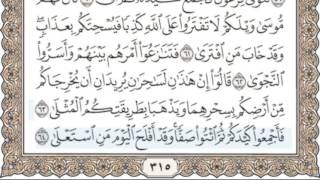 مُّوسَىٰ وَيْلَكُمْ لَا تَفْتَرُوا۟ عَلَى ٱللَّهِ كَذِبًا فَيُسْحِتَكُم بِعَذَابٍ
وَقَدْ خَابَ مَنِ ٱفْتَرَىٰ ٦١ فَتَنَٰزَعُوٓا۟ أَمْرَهُم بَيْنَهُمْ وَأَسَرُّوا۟
ٱلنَّجْوَىٰ ٦٢ قَالُوٓا۟ إِنْ هَٰذَٰنِ لَسَٰحِرَٰنِ يُرِيدَانِ أَن يُخْرِجَاكُم
مِّنْ أَرْضِكُم بِسِحْرِهِمَا وَيَذْهَبَا بِطَرِيقَتِكُمُ ٱلْمُثْلَىٰ ٦٣
فَأَجْمِعُوا۟ كَيْدَكُمْ ثُمَّ ٱئْتُوا۟ صَفًّا وَقَدْ أَفْلَحَ ٱلْيَوْمَ مَنِ ٱسْتَعْلَىٰ ٦٤
٣١٥